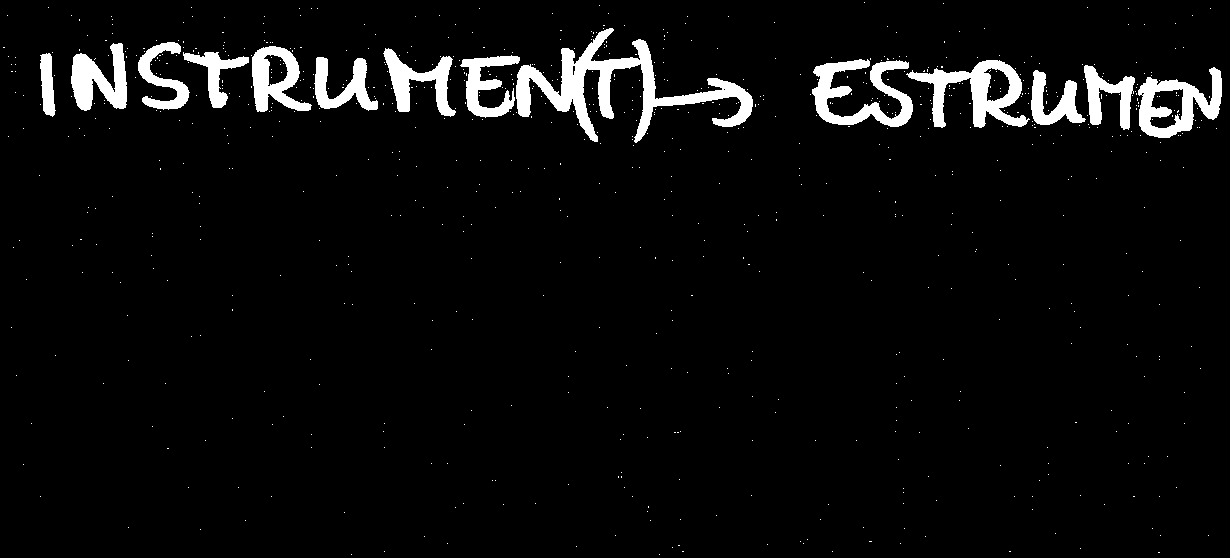 INSTRUMEN(T) → ESTRUMEN